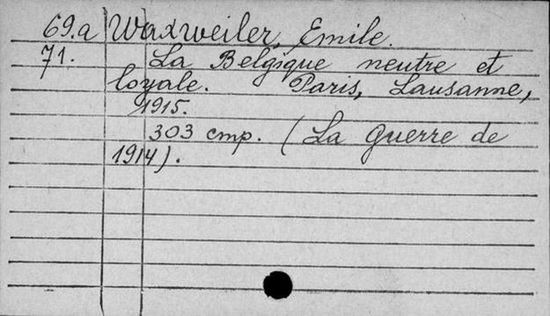 69.a Waxweiler, Emile.
71. La Belgique neutre et
loyale. Paris, Lausanne,
1915.
303 cmp. (La Guerre de
1914).